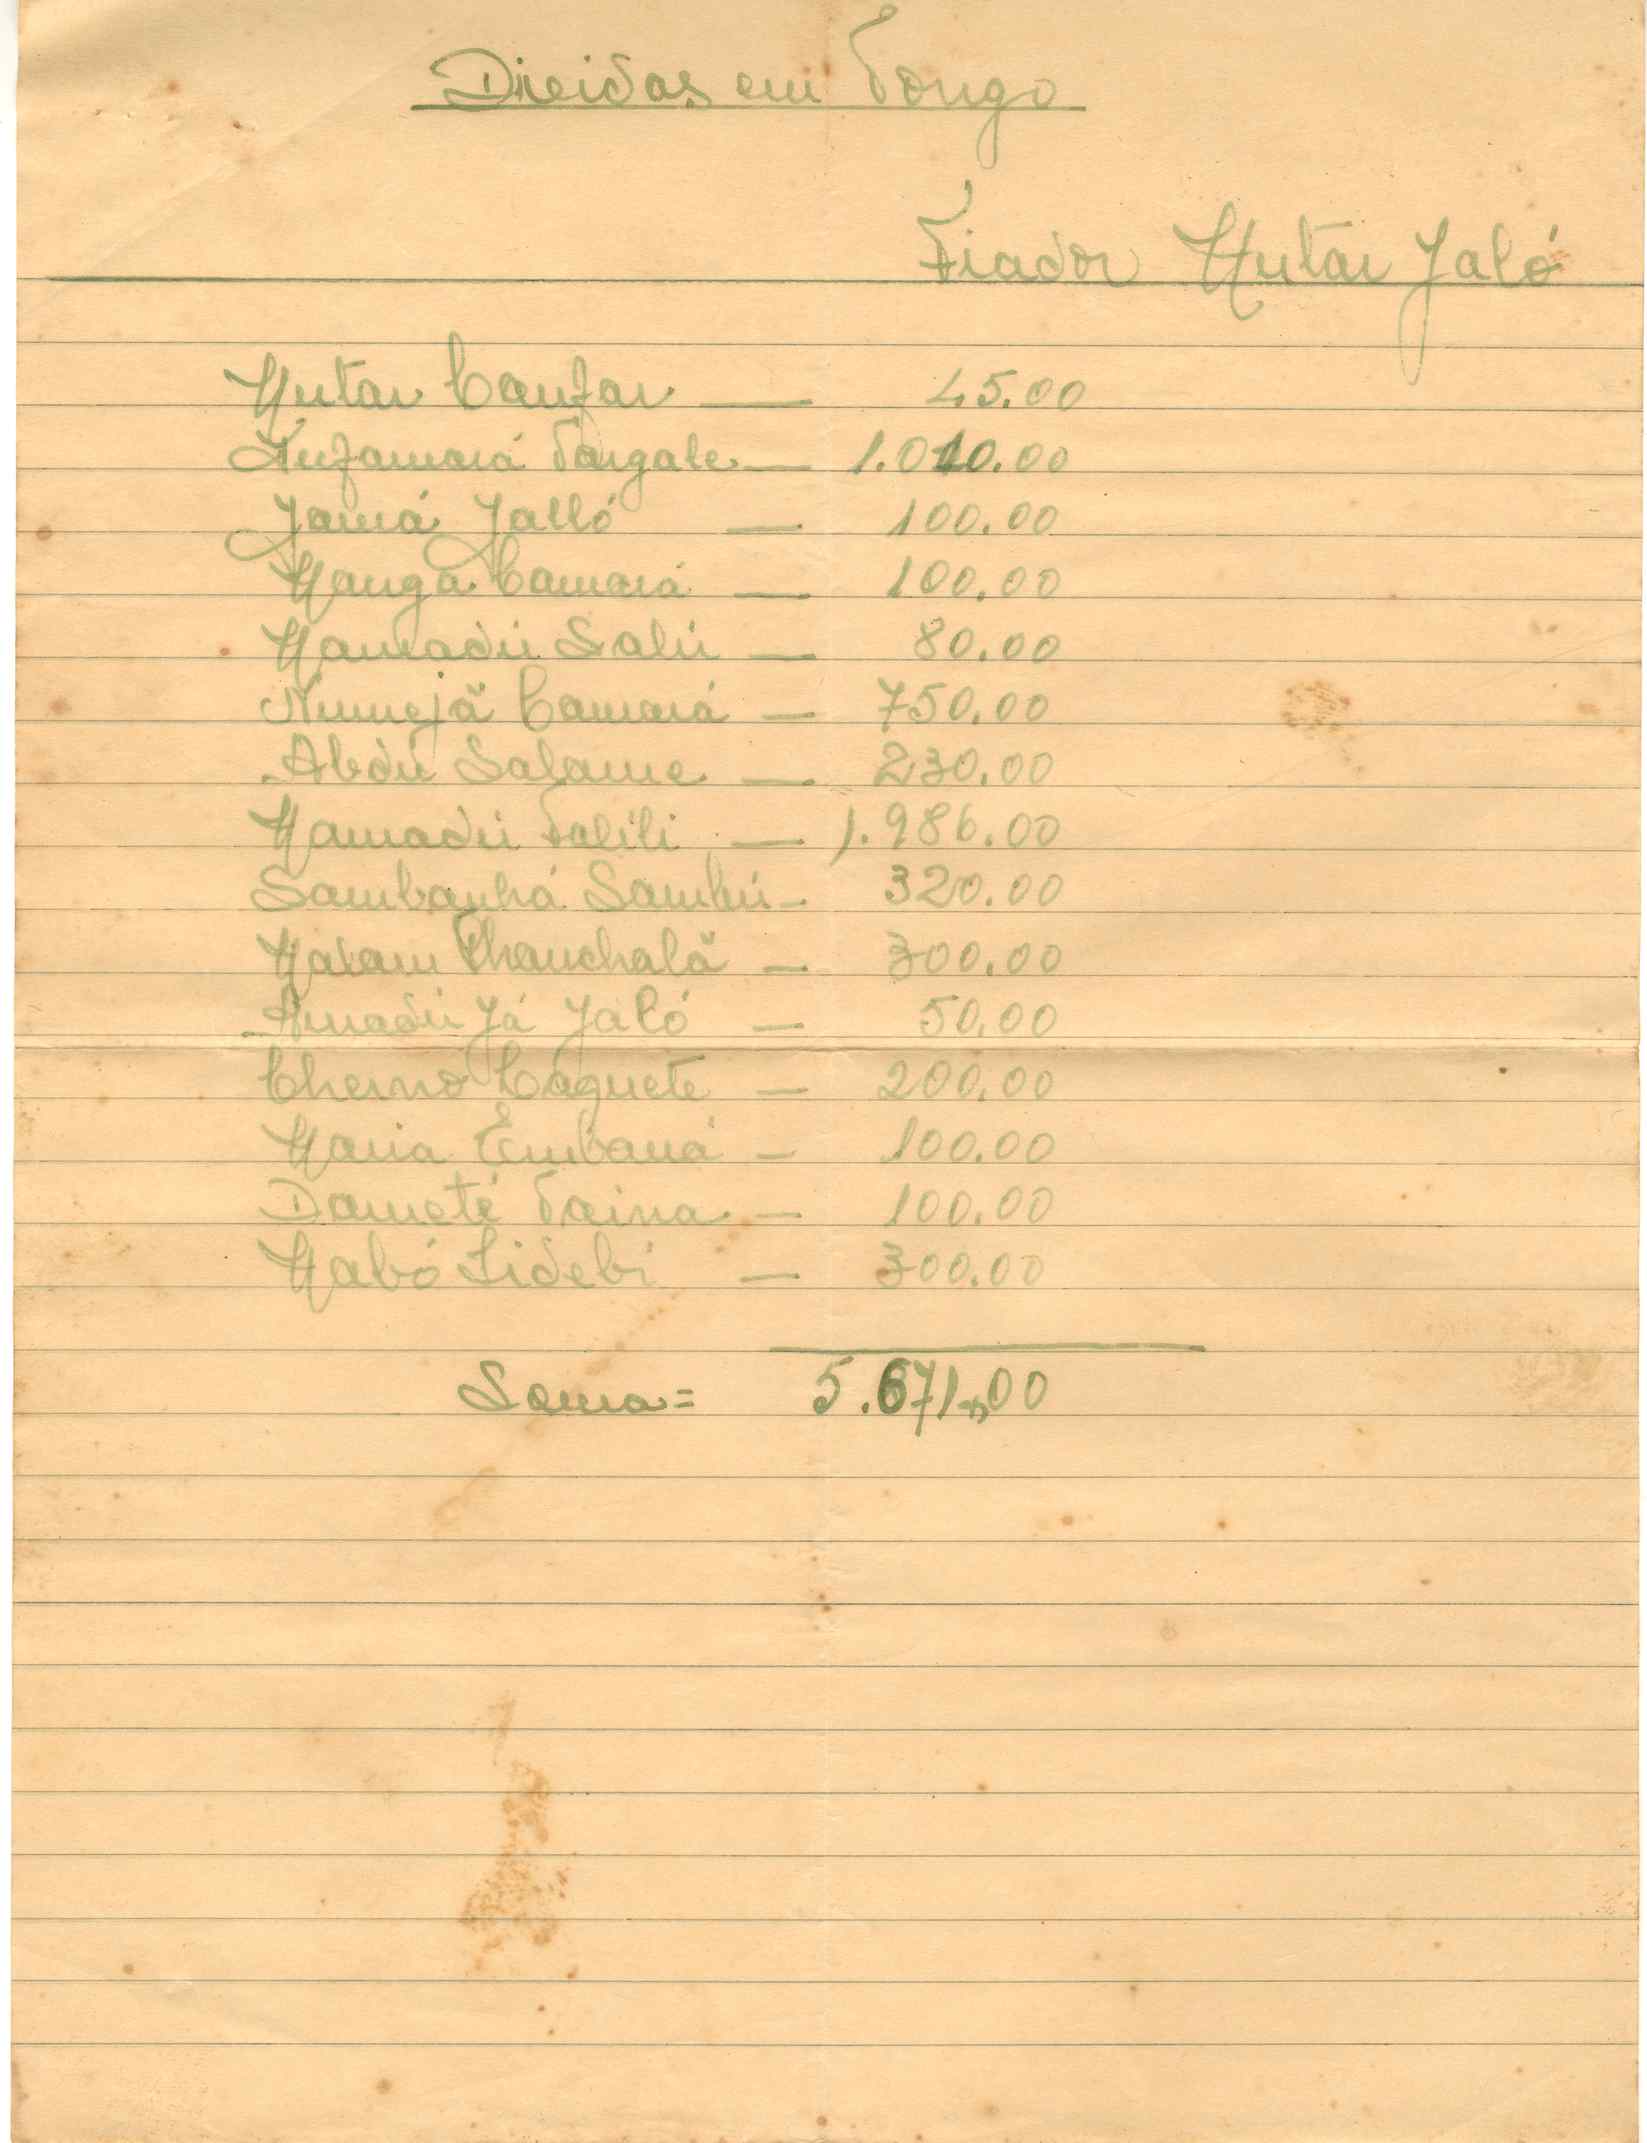 Dividas em Tongo
Fiador Mutar Jaló
Mutar Canfar — 45.00
Anfamará Tangate — 1.010.00
Jamá Jalló — 100.00
Manga Camará — 100.00
Mamadú Salú — 80.00
Camará — 750.00
Abdú Salame — 230.00
Mamadú Talili — 1.986.00
Sambanhá Sambú — 320.00
Malam — 300.00
Amadú Já Jaló — 50.00
Cherno Caquete — 200.00
Maria Embaná — 100.00
Dameté Taina — 100.00
Mabó Sidebi — 300.00
Soma = 5.671,00